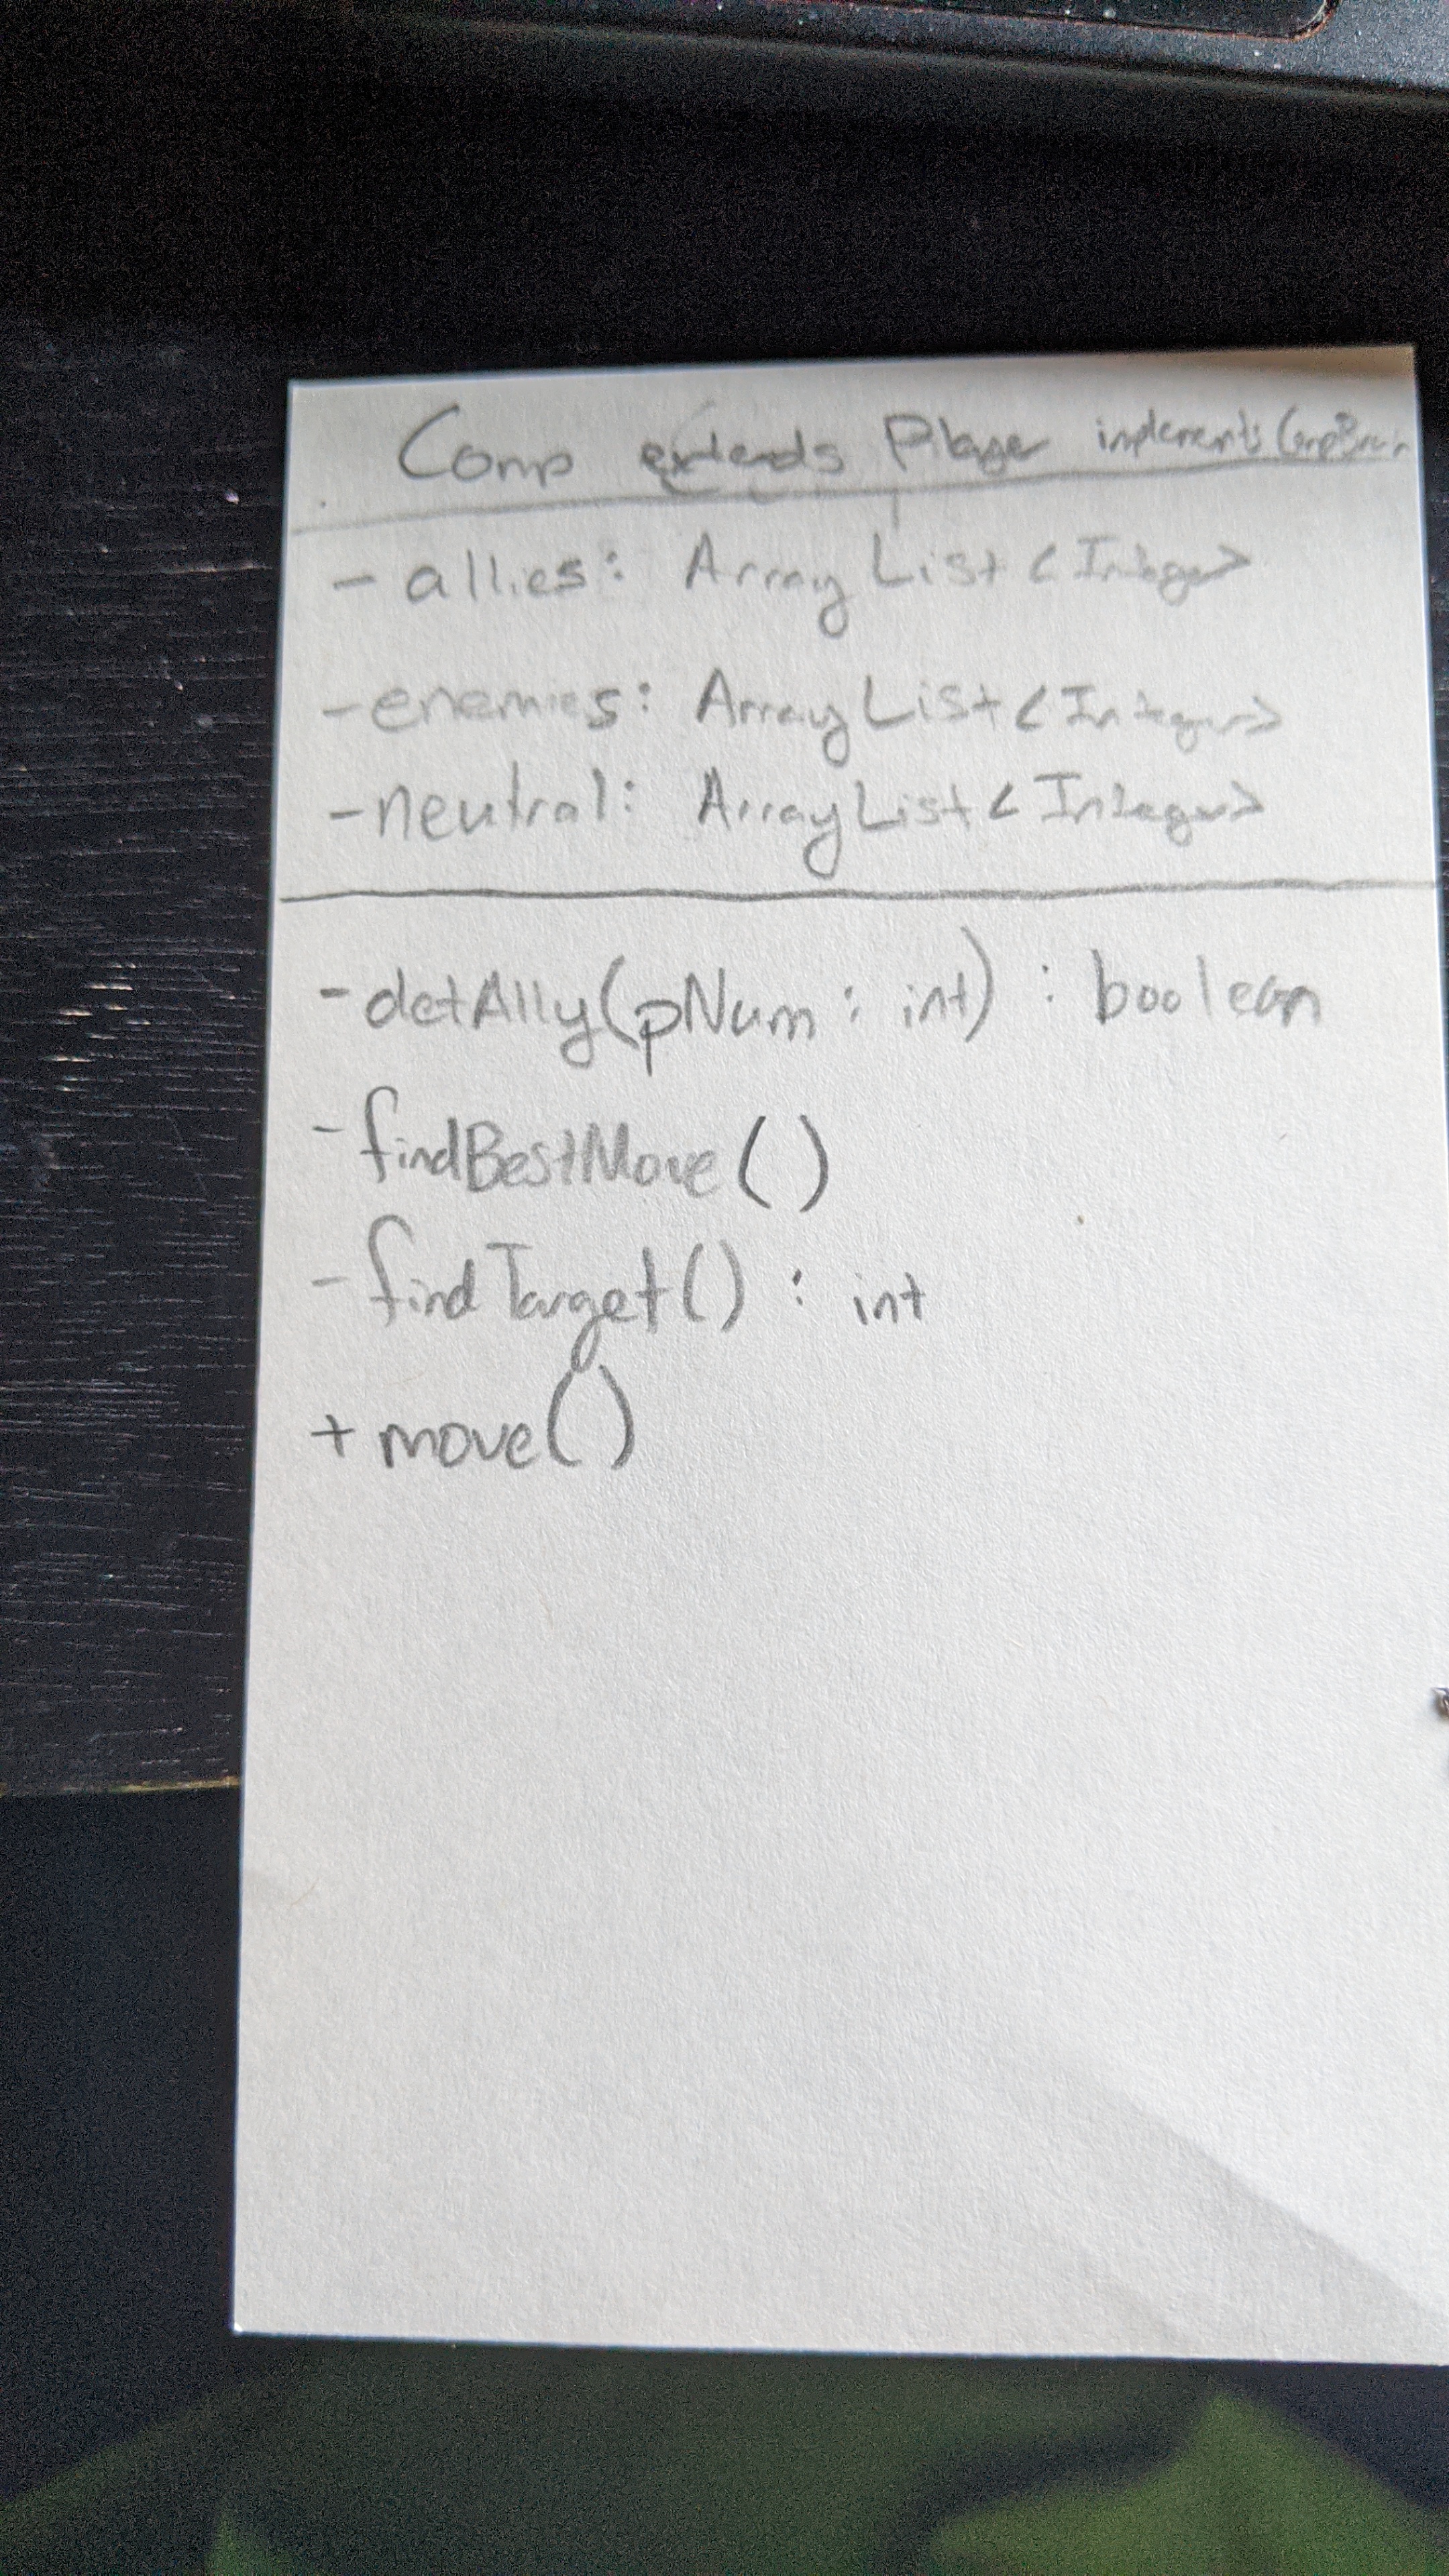 Comp extends Player implements CompBrain
- allies: ArrayList<Integer>
- enemies: ArrayList<Integer>
- neutral: ArrayList<Integer>
- detAlly(pNum: int) : boolean
- findBestMove()
- findTarget() : int
+ move()